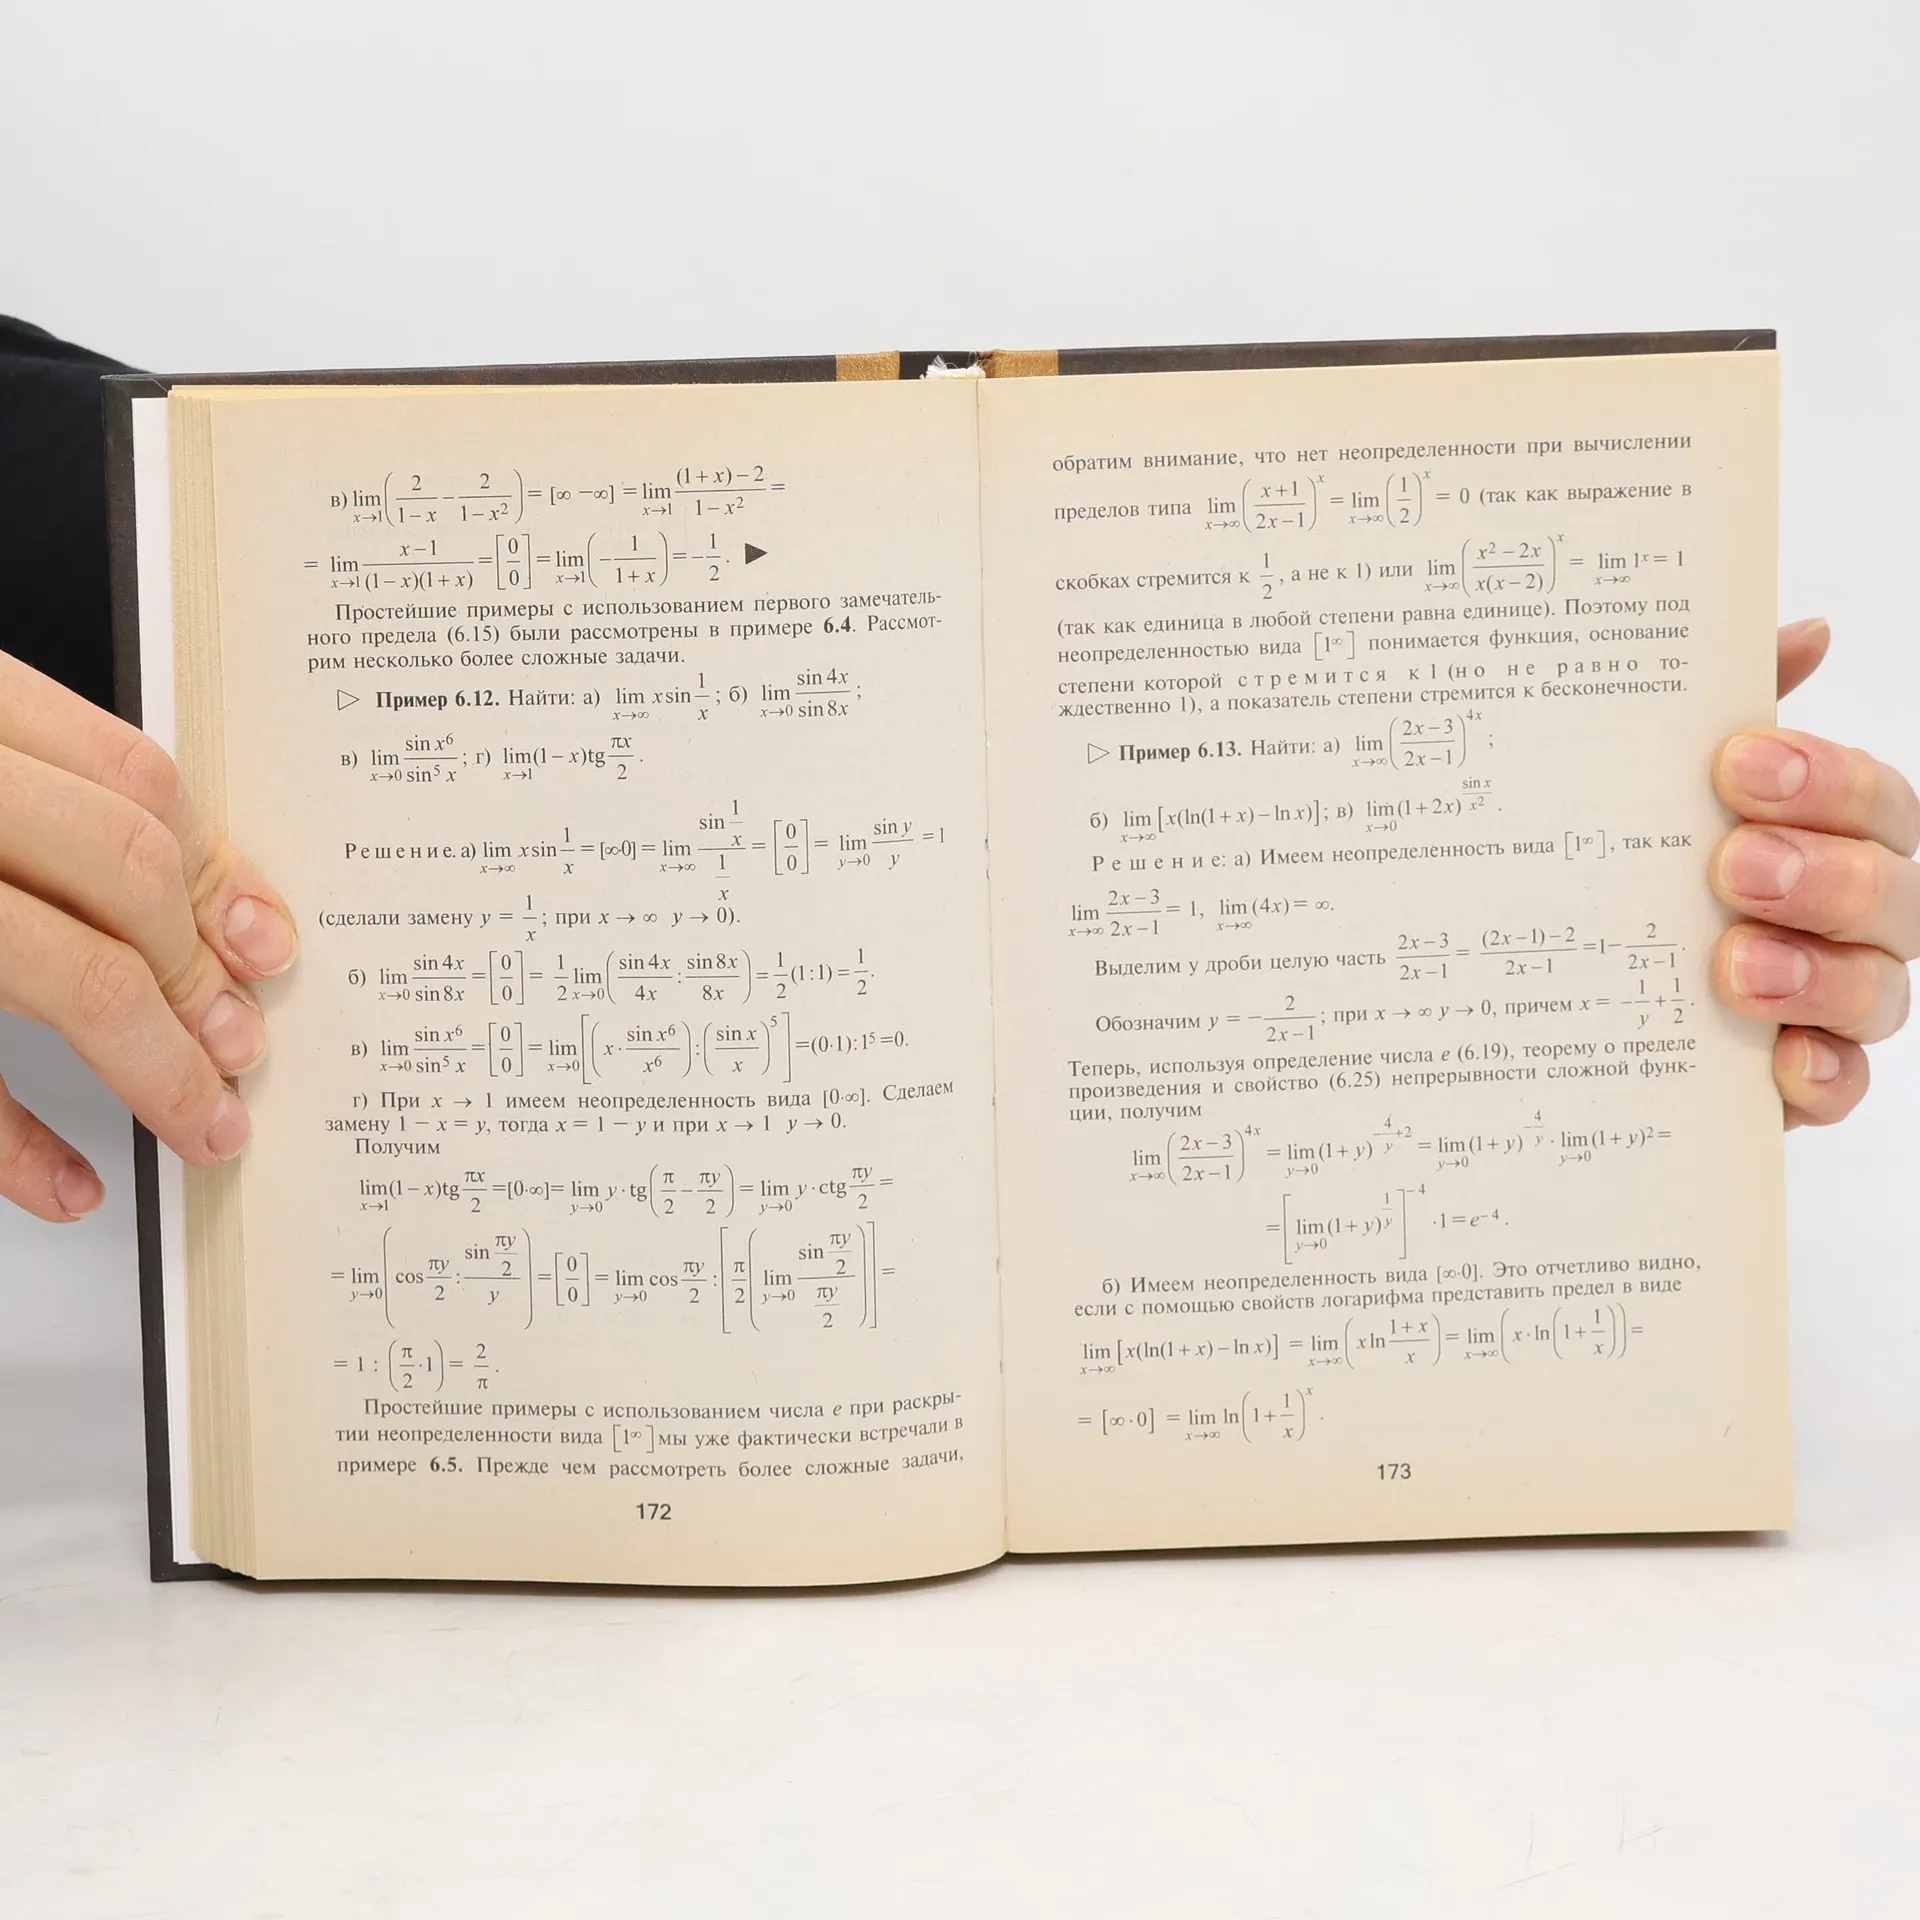 в) lim x→1 (2/(1−x) − 2/(1−x²)) = [∞ −∞] = lim x→1 ((1+x)−2)/(1−x²) =
= lim x→1 (x−1)/((1−x)(1+x)) = [0/0] = lim x→1 (−1/(1+x)) = −1/2. ▶
Простейшие примеры с использованием первого замечатель-
ного предела (6.15) были рассмотрены в примере 6.4. Рассмот-
рим несколько более сложные задачи.
▷ Пример 6.12. Найти: а) lim x→∞ x sin 1/x; б) lim x→0 sin 4x/sin 8x;
в) lim x→0 sin x⁶/sin⁵ x; г) lim x→1 (1−x)tg πx/2.
Решение. а) lim x→∞ x sin 1/x = [∞·0] = lim x→∞ (sin 1/x)/(1/x) = [0/0] = lim y→0 sin y/y = 1
(сделали замену y = 1/x; при x → ∞ y → 0).
б) lim x→0 sin 4x/sin 8x = [0/0] = 1/2 lim x→0 (sin 4x/4x : sin 8x/8x) = 1/2(1:1) = 1/2.
в) lim x→0 sin x⁶/sin⁵ x = [0/0] = lim x→0 [(x · sin x⁶/x⁶) : (sin x/x)⁵] = (0·1):1⁵ = 0.
г) При x → 1 имеем неопределенность вида [0·∞]. Сделаем
замену 1 − x = y, тогда x = 1 − y и при x → 1 y → 0.
Получим
lim x→1 (1−x)tg πx/2 = [0·∞] = lim y→0 y·tg(π/2 − πy/2) = lim y→0 y·ctg πy/2 =
= lim y→0 (cos πy/2 : (sin πy/2)/y) = [0/0] = lim y→0 cos πy/2 : [π/2 (lim y→0 (sin πy/2)/(πy/2))] =
= 1 : (π/2 ·1) = 2/π.
Простейшие примеры с использованием числа e при раскры-
тии неопределенности вида [1^∞] мы уже фактически встречали в
примере 6.5. Прежде чем рассмотреть более сложные задачи,
172
обратим внимание, что нет неопределенности при вычислении
пределов типа lim x→∞ ((x+1)/(2x−1))^x = lim x→∞ (1/2)^x = 0 (так как выражение в
скобках стремится к 1/2, а не к 1) или lim x→∞ ((x²−2x)/(x(x−2)))^x = lim x→∞ 1^x = 1
(так как единица в любой степени равна единице). Поэтому под
неопределенностью вида [1^∞] понимается функция, основание
степени которой стремится к 1 (но не равно то-
ждественно 1), а показатель степени стремится к бесконечности.
▷ Пример 6.13. Найти: а) lim x→∞ ((2x−3)/(2x−1))^(4x);
б) lim x→∞ [x(ln(1+x)−ln x)]; в) lim x→0 (1+2x)^(sin x/x²).
Решение: а) Имеем неопределенность вида [1^∞], так как
lim x→∞ (2x−3)/(2x−1) = 1, lim x→∞ (4x) = ∞.
Выделим у дроби целую часть (2x−3)/(2x−1) = ((2x−1)−2)/(2x−1) = 1− 2/(2x−1).
Обозначим y = − 2/(2x−1); при x → ∞ y → 0, причем x = −1/y + 1/2.
Теперь, используя определение числа e (6.19), теорему о пределе
произведения и свойство (6.25) непрерывности сложной функ-
ции, получим
lim x→∞ ((2x−3)/(2x−1))^(4x) = lim y→0 (1+y)^(−4/y+2) = lim y→0 (1+y)^(−4/y) · lim y→0 (1+y)² =
= [lim y→0 (1+y)^(1/y)]^(−4) ·1 = e⁻⁴.
б) Имеем неопределенность вида [∞·0]. Это отчетливо видно,
если с помощью свойств логарифма представить предел в виде
lim x→∞ [x(ln(1+x)−ln x)] = lim x→∞ (x ln (1+x)/x) = lim x→∞ (x·ln(1+1/x)) =
= [∞·0] = lim x→∞ ln(1+1/x)^x.
173